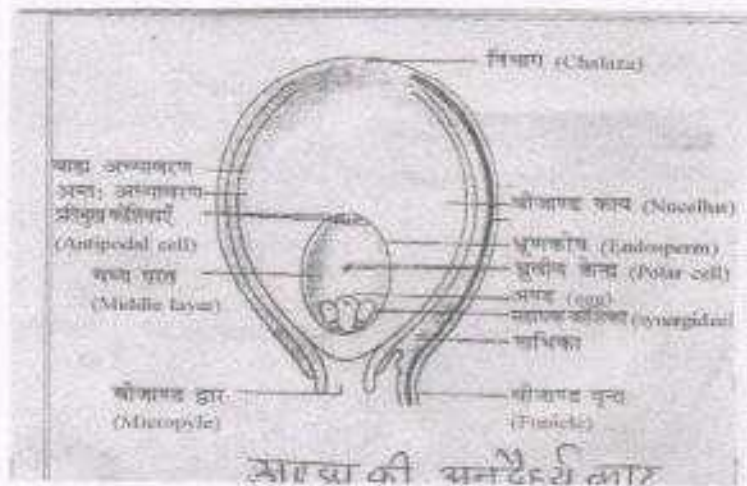 निभाग (Chalaza)
बाह्य अध्यावरण
अन्त: अध्यावरण
प्रतिमुख कोशिकाएँ
(Antipodal cell)
मध्य परत
(Middle layer)
बीजाण्ड द्वार
(Micropyle)
बीजाण्ड काय (Nucellus)
भ्रूणकोष (Endosperm)
ध्रुवीय केन्द्र (Polar cell)
अण्ड (egg)
सहायक कोशिका (synergidcel
नाभिका
बीजाण्ड वृन्त
(Funicle)
की काट